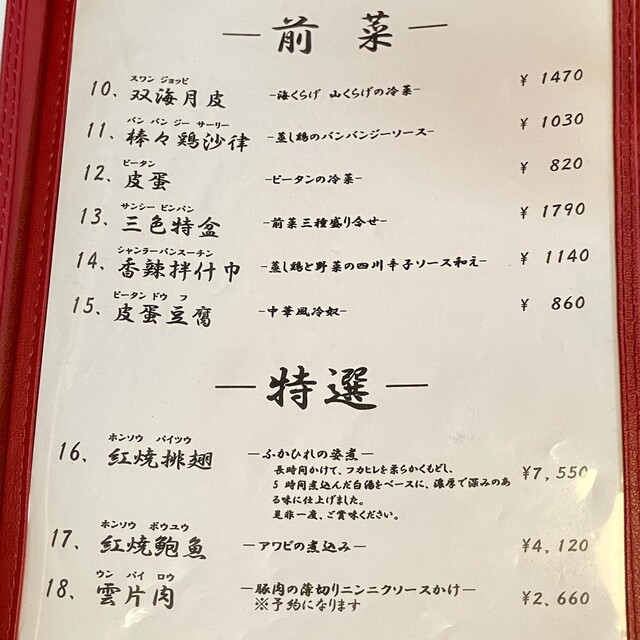 —前 菜—
スワン ジョッピ
10、双海月皮 -海くらげ 山くらげの冷菜- ¥ 1470
バン バン ジー サーリー
11、棒々鶏沙律 -蒸し鶏のバンバンジーソース- ¥ 1030
ピータン
12、皮蛋 -ピータンの冷菜- ¥ 820
サンシー ピンパン
13、三色特盒 -前菜三種盛り合せ- ¥ 1790
シャンラーバンスーチン
14、香辣拌什巾 -蒸し鶏と野菜の四川辛子ソース和え- ¥ 1140
ピータン ドウ フ
15、皮蛋豆腐 -中華風冷奴- ¥ 860
—特選—
ホンソウ パイツウ
16、紅焼排翅 —ふかひれの姿煮— ¥7,550
長時間かけて、フカヒレを柔らかくもどし、
5 時間煮込んだ白湯をベースに、濃厚で深みのあ
る味に仕上げました。
是非一度、ご賞味ください。
ホンソウ ボウユウ
17、紅焼鮑魚 —アワビの煮込み— ¥4,120
ウン パイ ロウ
18、雲片肉 —豚肉の薄切りニンニクソースかけ— ¥2,660
※予約になります